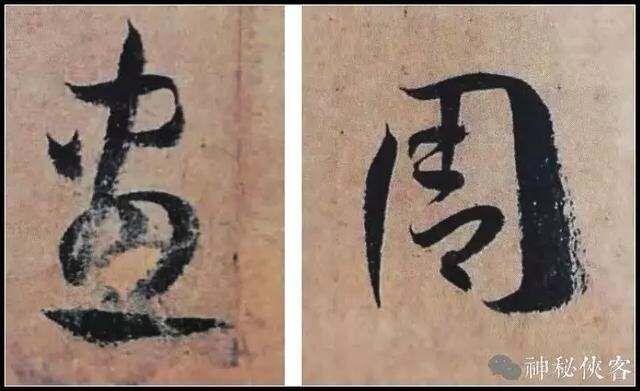 周
神秘俠客